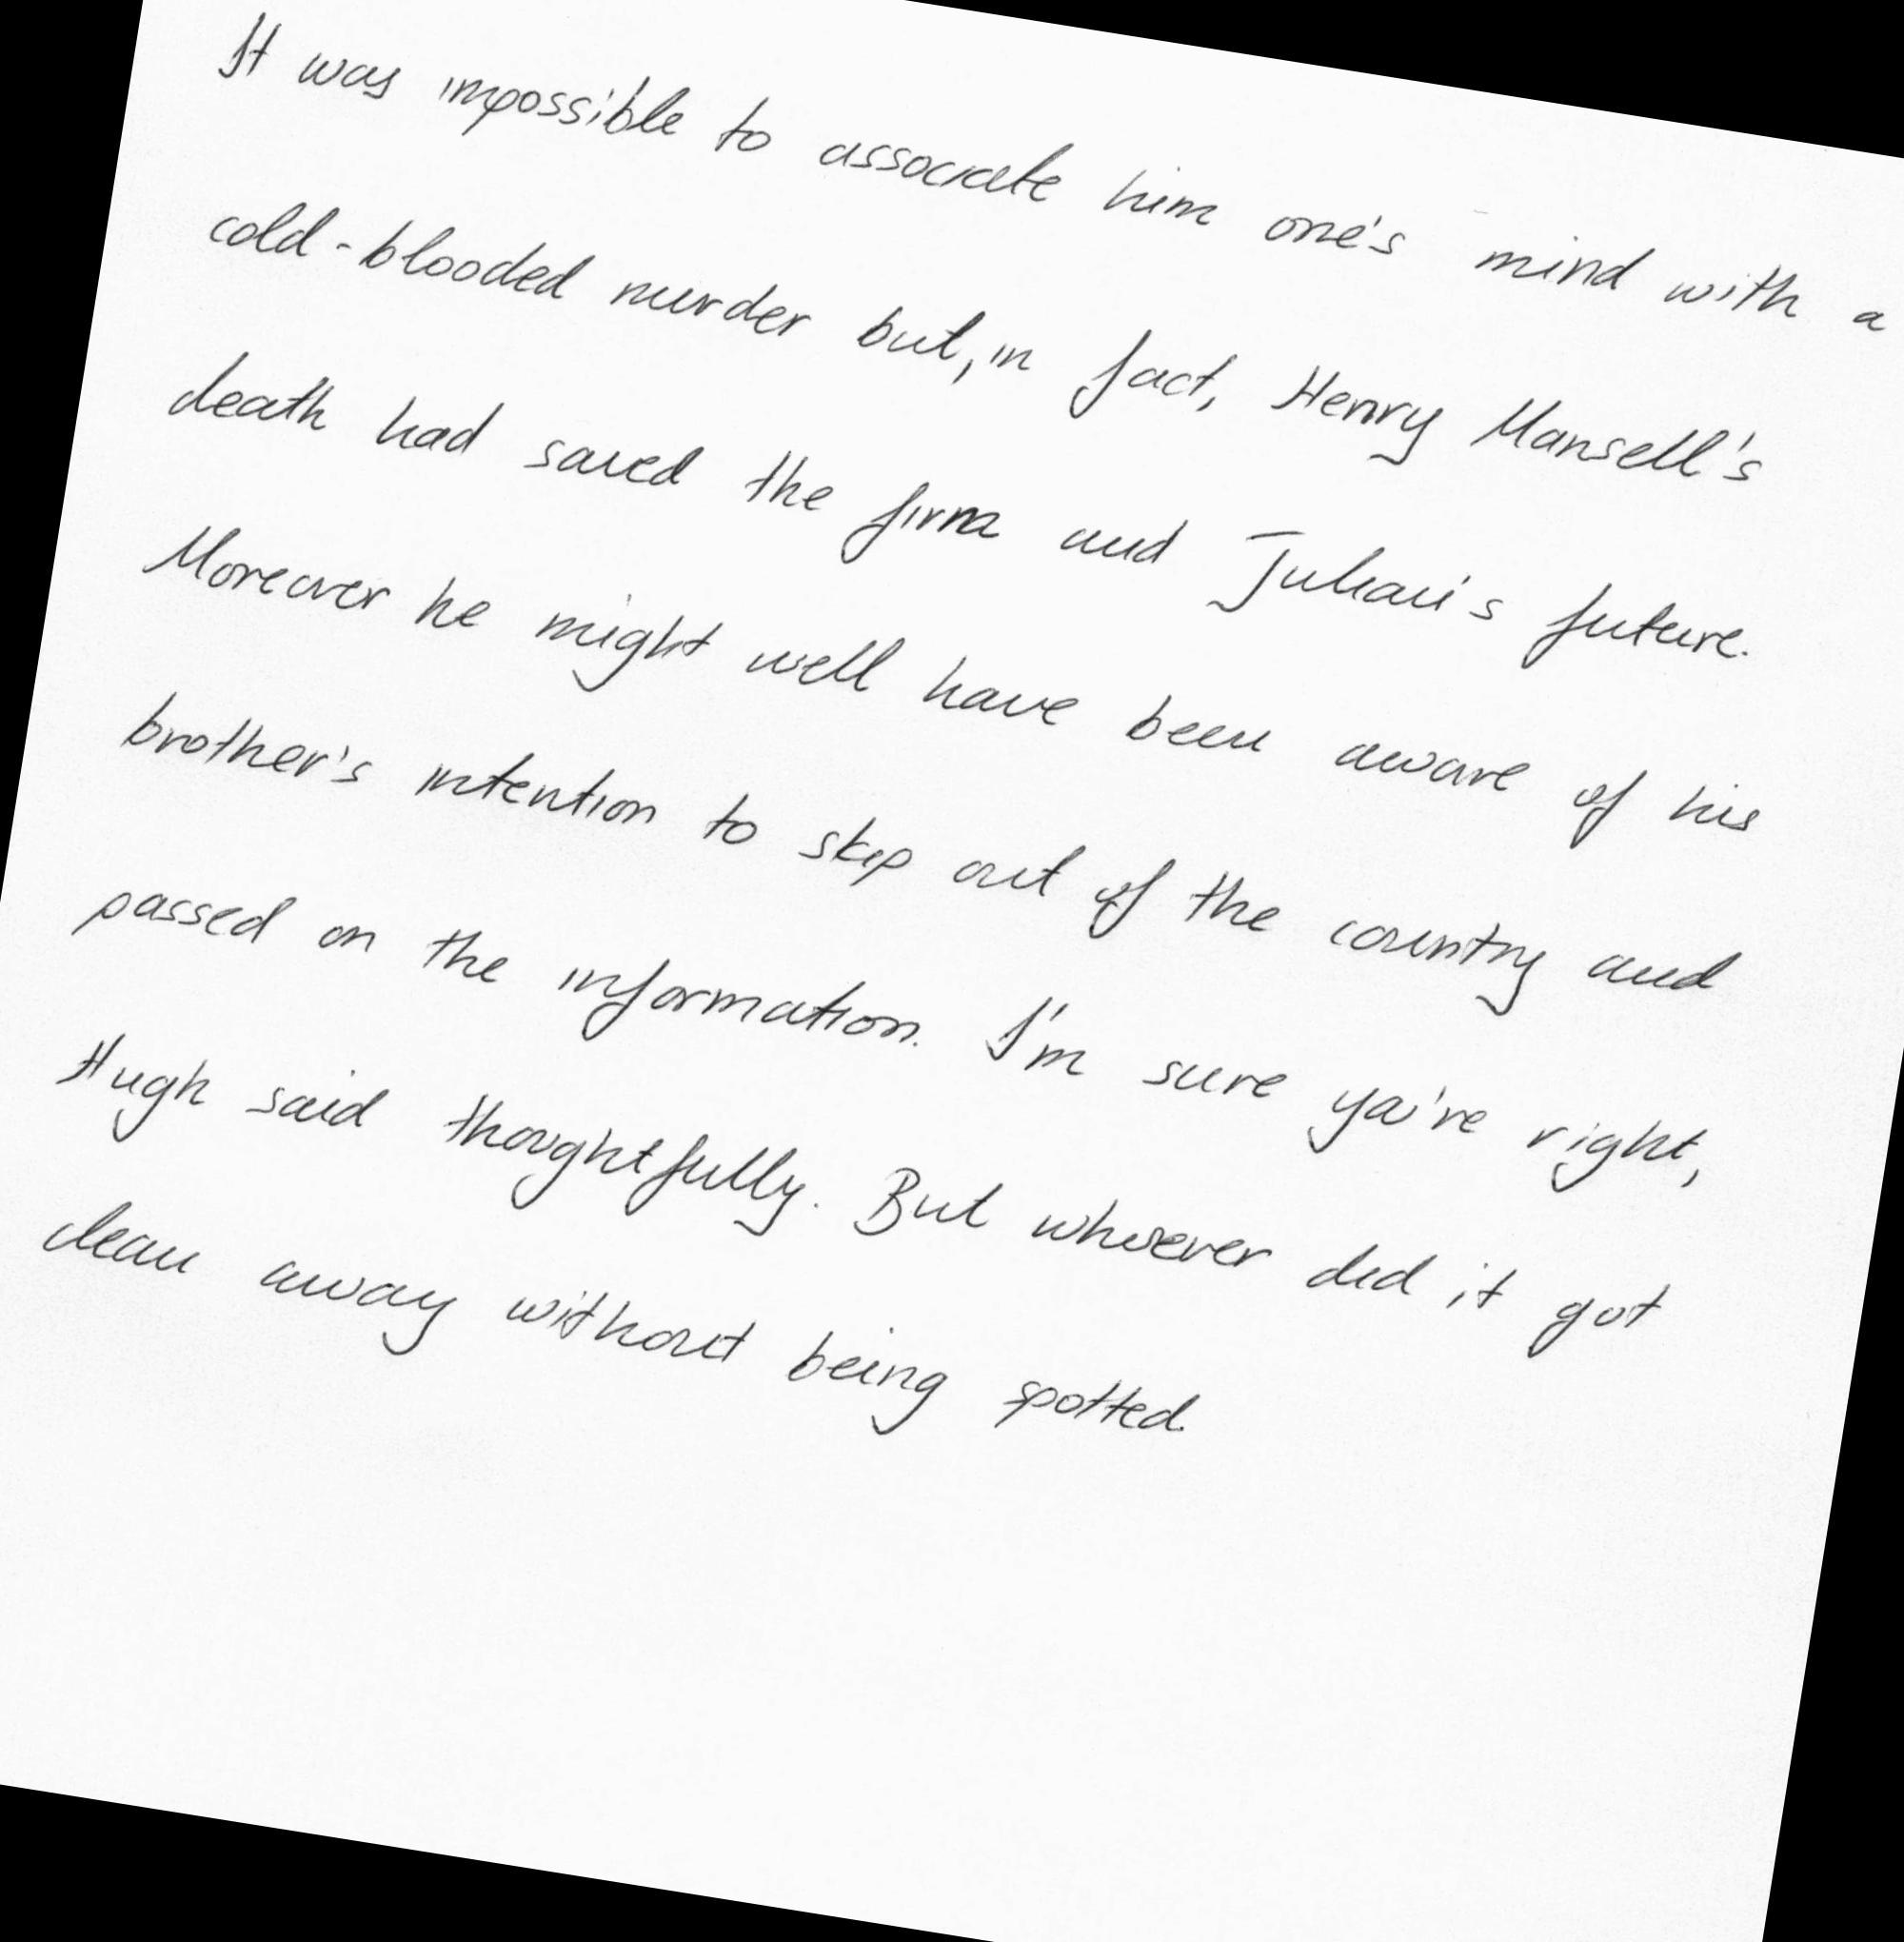 It was impossible to associate him one's mind with a
cold-blooded murder but, in fact, Henry Mansell's
death had saved the firm and Julian's future.
Moreover he might well have been aware of his
brother's intention to skip out of the country and
passed on the information. I'm sure you're right,
Hugh said thoughtfully. But whoever did it got
clean away without being spotted.